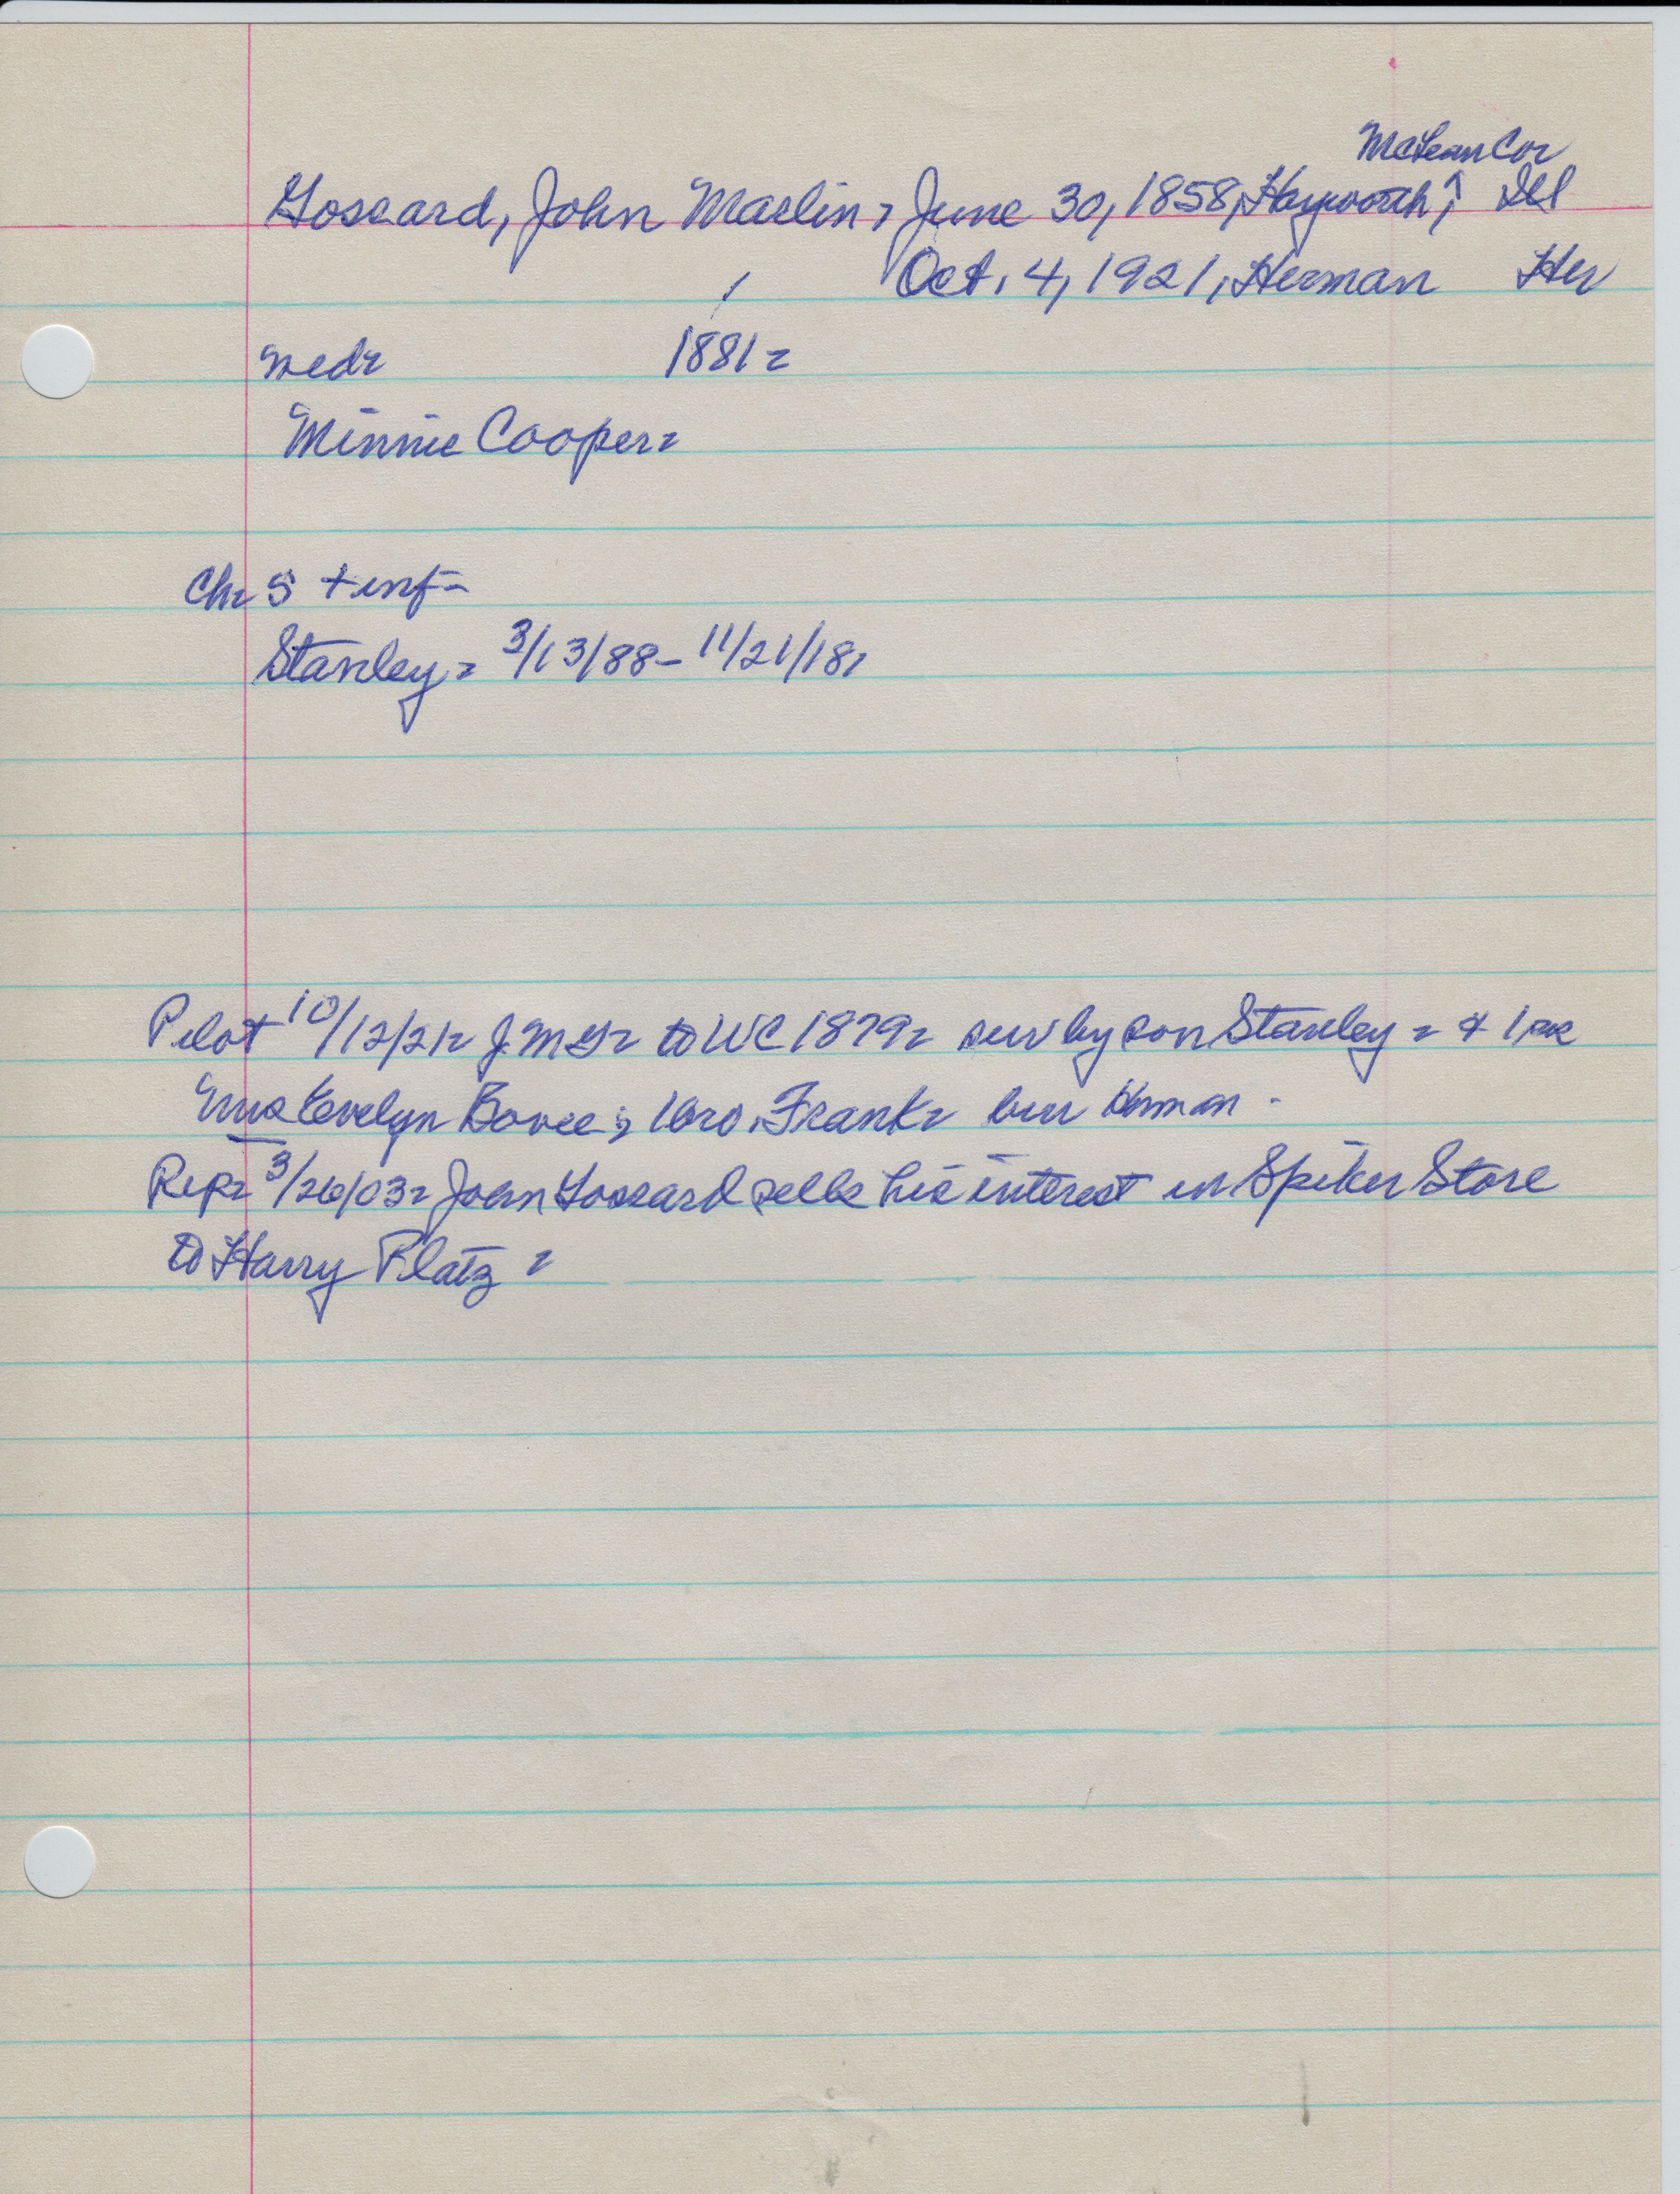 McLean Co,
Gossard, John Marlin, June 30, 1858, Hayworth, Ill
Oct. 4, 1921, Herman Her
wed, 1881,
Minnie Cooper,
Ch, 5 + inf -
Stanley, 3/13/88 - 11/21/18,
Pilot 10/12/21, J M G, to WC 1879, surv by son Stanley, & 1
Mrs Evelyn Bovee; 1 bro. Frank, bur Herman -
Rep, 3/26/03, John Gossard sells his interest in Spiker Store
to Harry Platz,